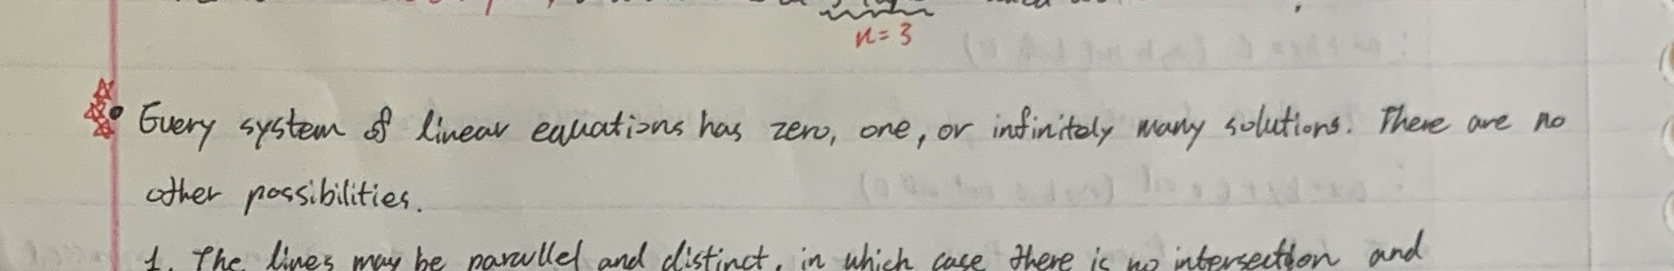 n = 3
• Every system of linear equations has zero, one, or infinitely many solutions. There are no
other possibilities.
1. The lines may be parallel and distinct, in which case there is no intersection and